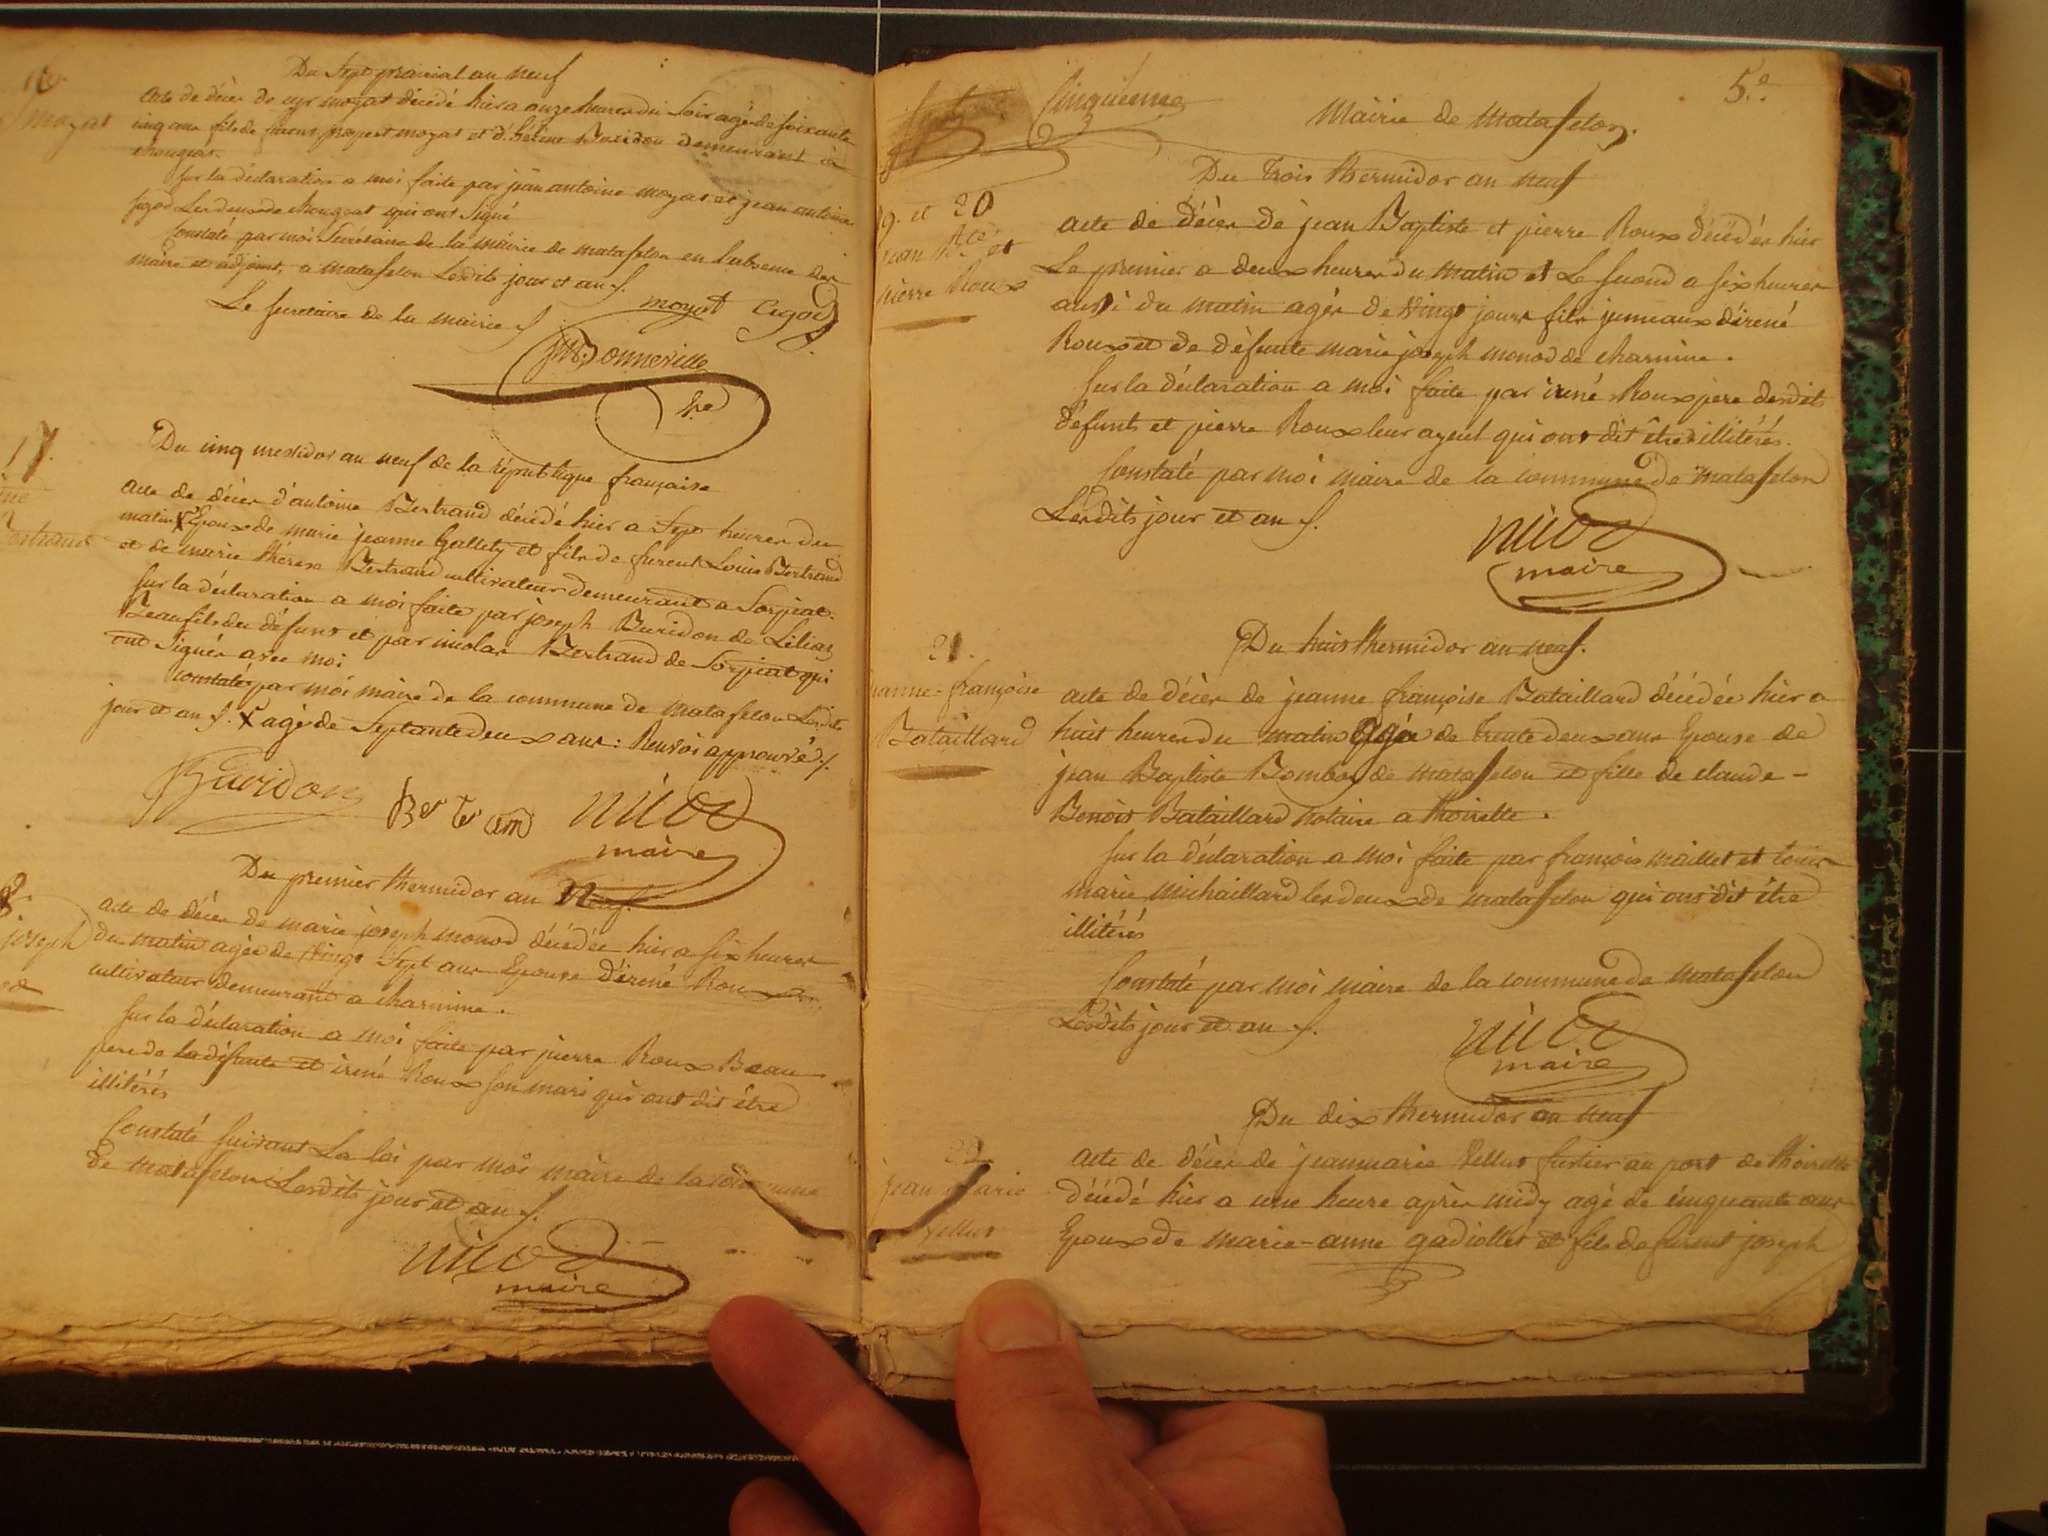 16.
Moyat
Du Sept prairial an neuf
acte de décès de cyr moyat décédé hier a onze heures du Soir agé de soixante
cinq ans fils de furent prospert moyat et d'hélène Buridon demeurant à
chougeat.
sur la déclaration a moi faite par jean antoine moyat et jean antoine
sigod Les deux de chougeat qui ont Signé
Constaté par moi Secrétaire de la mairie de matafelon en l'absence des
maire et adjoint, a matafelon Lesdits jour et an f.
moyat Cigod
Le Secretaire de la mairie f
Bonneville
Sre
17.
Bertrand
Du cinq messidor an neuf de la république française
acte de décès d'antoine Bertrand décédé hier a Sept heures du
matin X Epoux de marie jeanne Gallety et fils de furent Louis Bertrand
et de marie thérèse Bertrand cultivateur demeurant a Sorpiat.
sur la déclaration a moi faite par joseph Buridon de Lilian
Beaufils du défunt et par nicolas Bertrand de Sorpiat qui
ont Signés avec moi
constatés par moi maire de la commune de matafelon Lesdits
jour et an f. X agé de Septante deux ans : Renvoi approuvé f.
Buridon Ber te ran nicod
maire
Du premier thermidor an Neuf.
8.
joseph
acte de décès de marie joseph monod décédée hier a six heures
du matin agée de vingt Sept ans Epouse d'irené Roux
cultivateur demeurant a charmine.
sur la déclaration a moi faite par pierre Roux Beau
pere de la défunte et irené Roux son mari qui ont dit être
illitérés
Constaté suivant La loi par moi maire de la commune
de matafelon Lesdits jour et an f.
nicod
maire
5.e
Cinquieme
Mairie de Matafelon.
Du Trois thermidor an neuf
19. et 20
jean Bte et
pierre Roux
acte de décès de jean Baptiste et pierre Roux décédés hier
Le premier a deux heures du matin et Le second a six heures
aussi du matin agés de vingt jours fils jumeaux d'irené
Roux et de défunte marie joseph monod de charmine.
sur la déclaration a moi faite par irené Roux père desdits
défunts et pierre Roux leur ayeul qui ont dit être illitérés.
Constaté par moi maire de la commune de matafelon
Lesdits jour et an f.
nicod
maire
Du huit thermidor an neuf.
21.
jeanne-françoise
Bataillard
acte de décès de jeanne françoise Bataillard décédée hier a
huit heures du matin agée de trente deux ans Epouse de
jean Baptiste Bomboy de matafelon et fille de claude-
Benoit Bataillard notaire a thoirette.
sur la déclaration a moi faite par françois maillet et
marie michaillard les deux de matafelon qui ont dit être
illitérés
Constaté par moi maire de la commune de matafelon
Lesdits jour et an f.
nicod
maire
Du dix thermidor an neuf
22
jean marie
Vellut
acte de décès de jean marie Vellut fustier au port de thoirette
décédé hier a une heure après midy agé de cinquante ans
Epoux de marie-anne gadiollet et fils de furent joseph